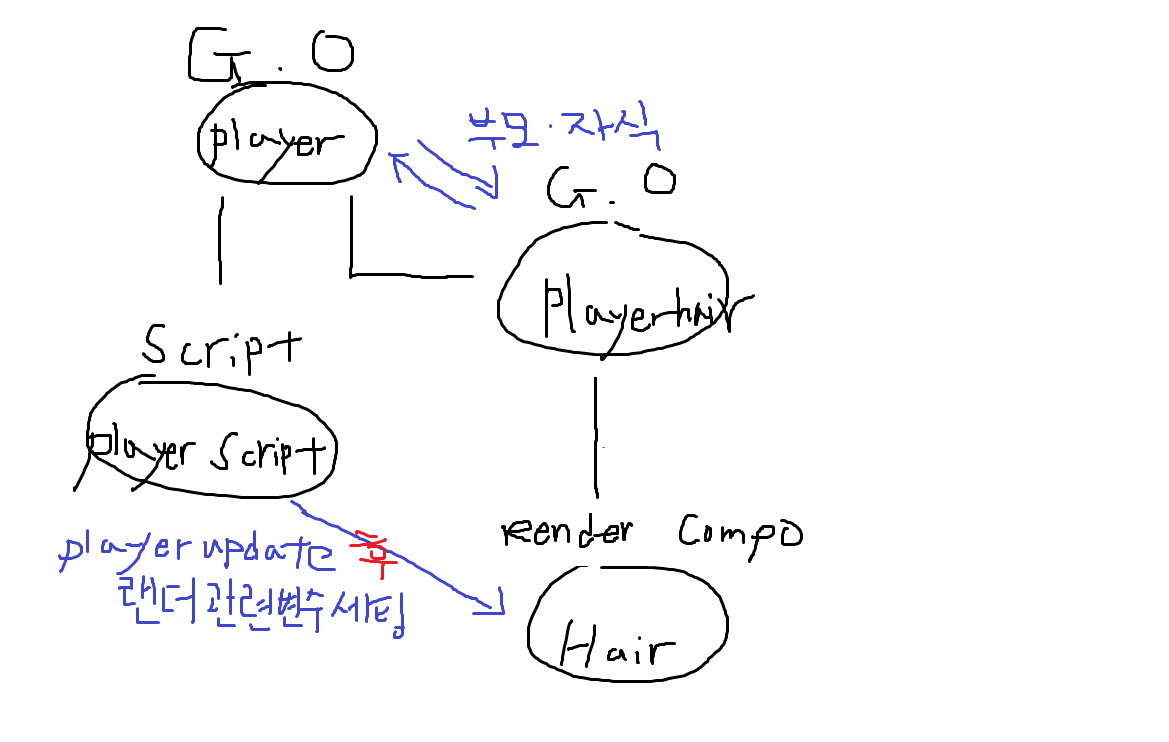 G.O
player
부모·자식
G.O
Playerhair
Script
player Script
player update 후
랜더 관련변수 세팅
Render Compo
Hair